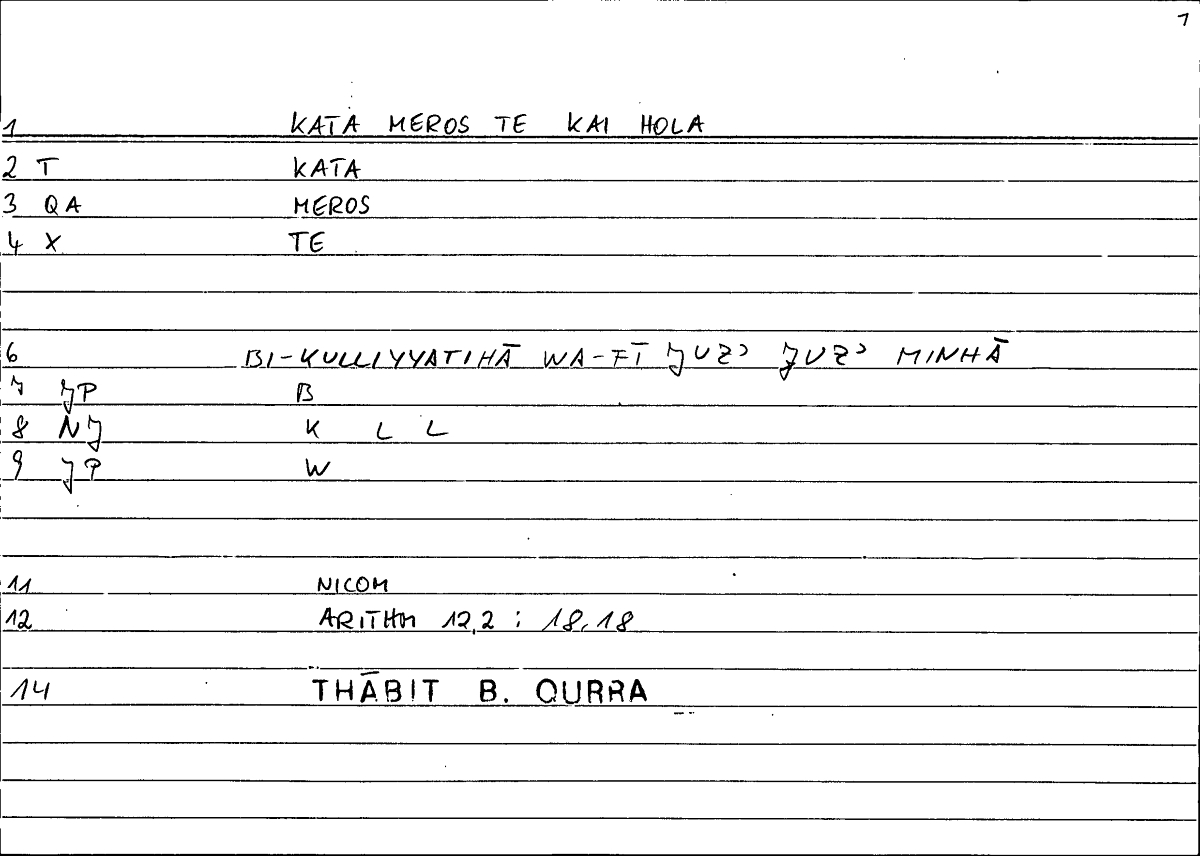 1
1 KATA MEROS TE KAI HOLA
2 T KATA
3 QA MEROS
4 X TE
6 BI-KULLIYYATIHĀ WA-FĪ JUZʾ JUZʾ MINHĀ
7 JP B
8 NJ K L L
9 JP W
11 NICOM
12 ARITHM 12,2 ; 18,18
14 THĀBIT B. QURRA